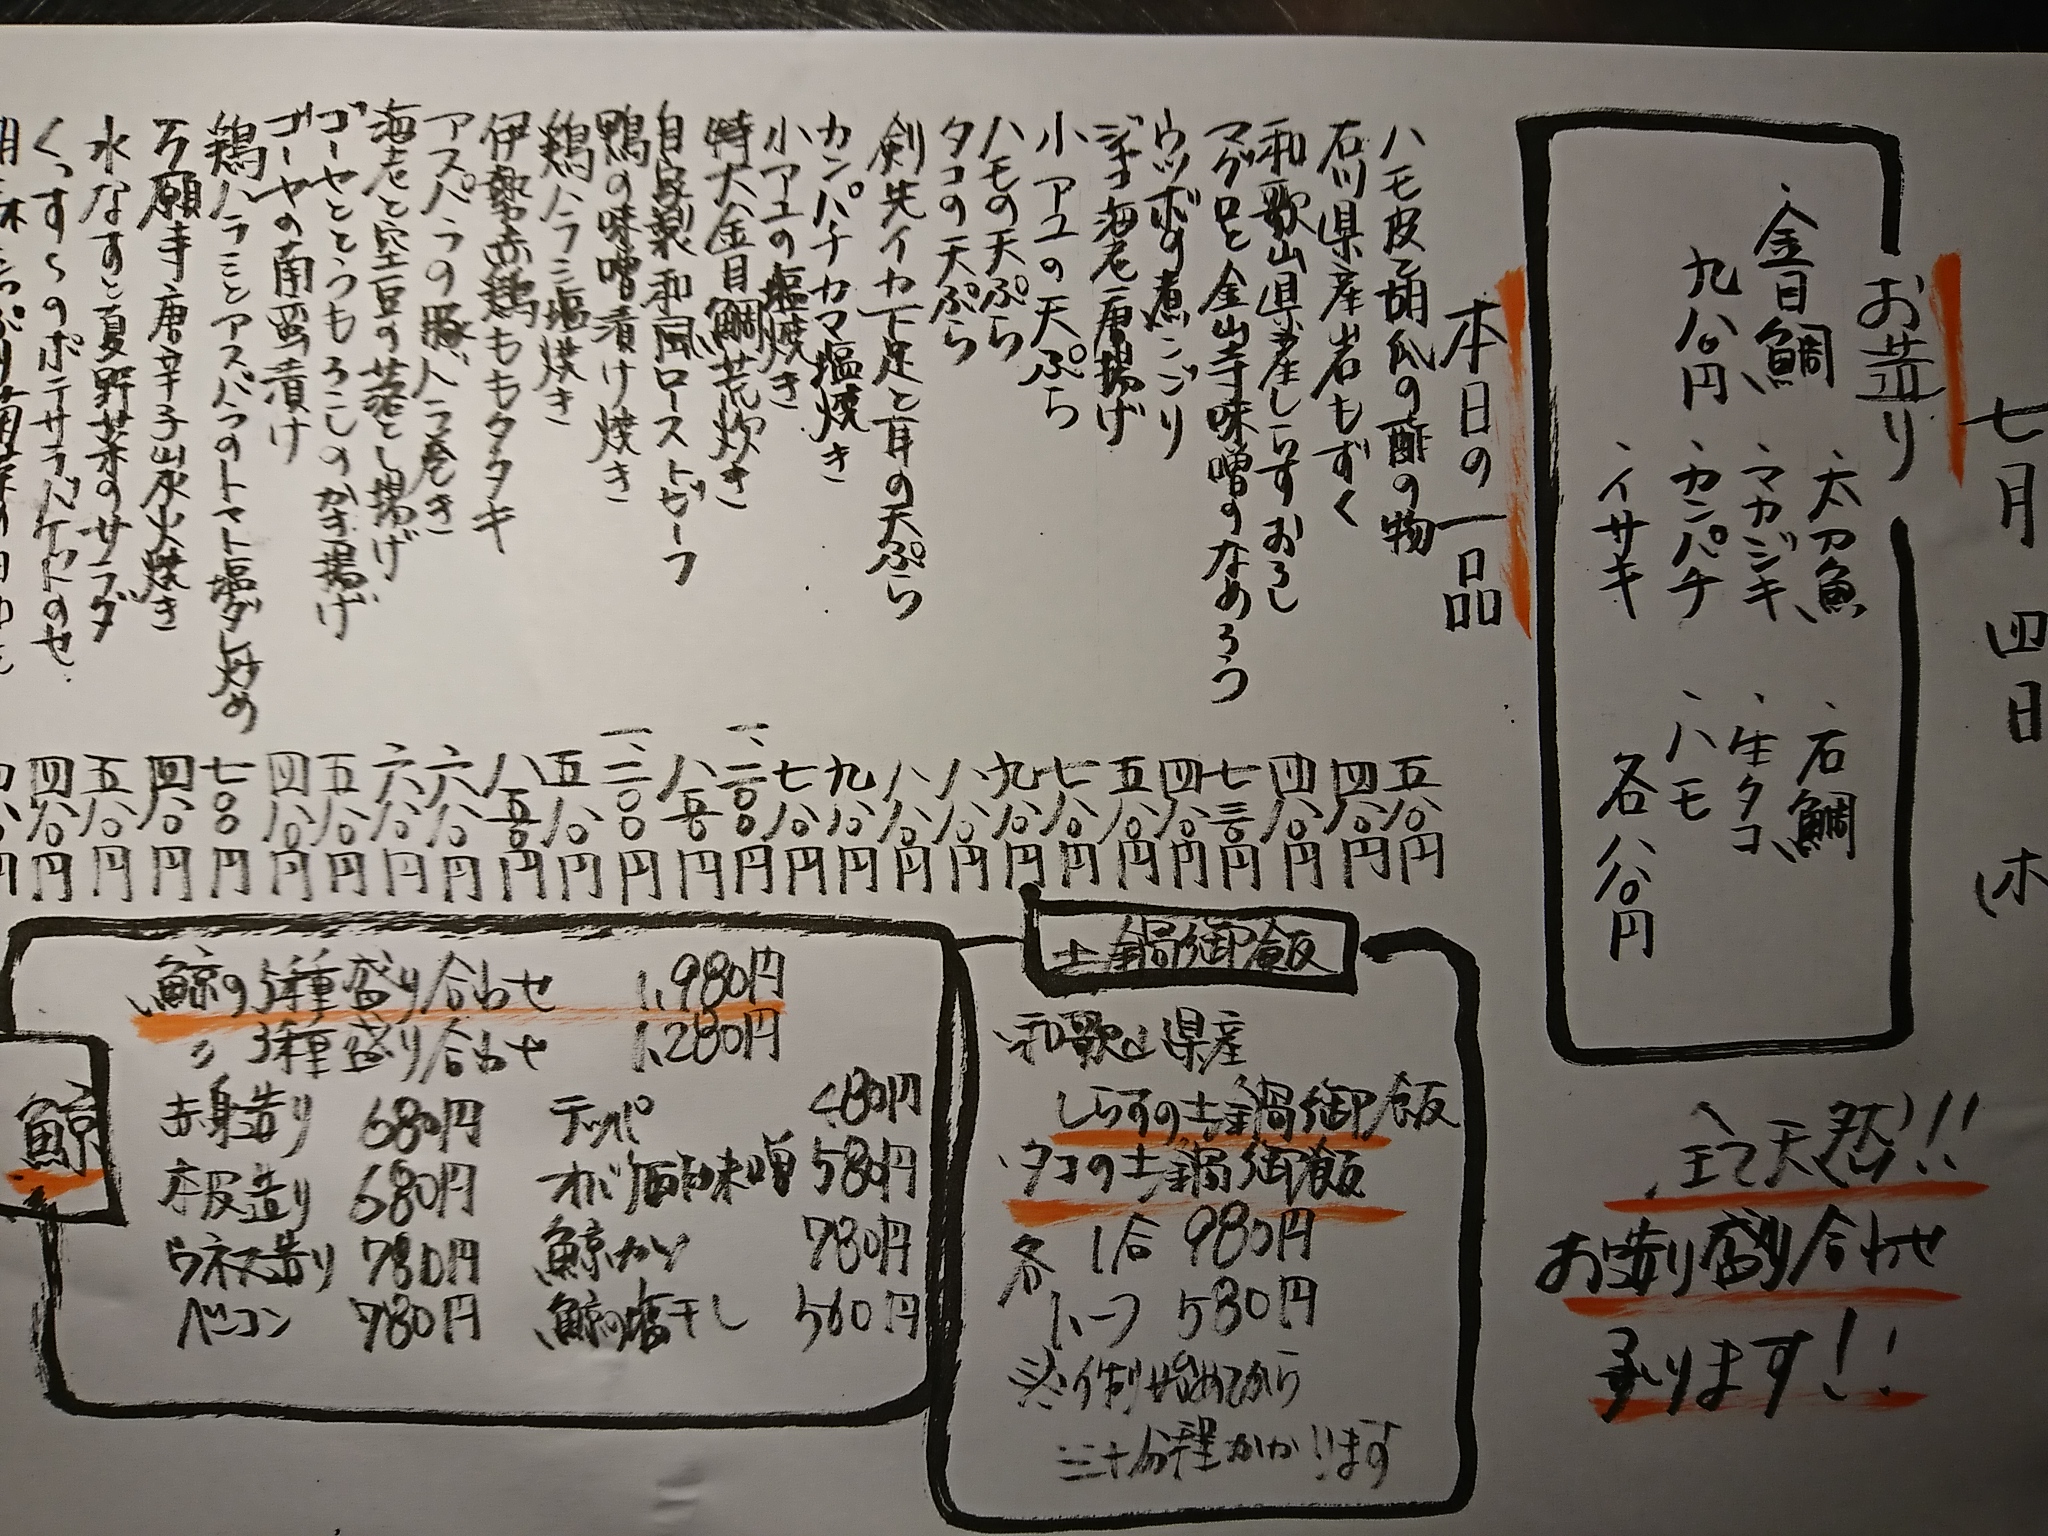 七月四日 木
お造り
・金目鯛
九八〇円
・太刀魚
・マカジキ
・カンパチ
・イサキ
・石鯛
・生タコ
・ハモ
各八八〇円
全て天然!!
お造り盛り合わせ
承ります!!
本日の一品
ハモ皮と胡瓜の酢の物 五八〇円
石川県産岩もずく 四八〇円
和歌山県産しらすおろし 四八〇円
マグロと金山寺味噌のなめろう 七三〇円
ウツボの煮こごり 四八〇円
ジャコ海老唐揚げ 五八〇円
小アユの天ぷら 七八〇円
ハモの天ぷら 九八〇円
タコの天ぷら 八八〇円
剣先イカ下足と耳の天ぷら 八八〇円
カンパチカマ塩焼き 九八〇円
小アユの塩焼き 七八〇円
特大金目鯛荒炊き 一、二〇〇円
自家製和風ローストビーフ 八五〇円
鴨の味噌漬け焼き 一、二〇〇円
鶏ハラミ塩焼き 五八〇円
伊勢赤鶏ももタタキ 八五〇円
アスパラの豚バラ巻き 六八〇円
海老と空豆の落とし揚げ 六八〇円
ゴーヤととうもろこしのかき揚げ 五八〇円
ゴーヤの南蛮漬け 四八〇円
鶏ハラミとアスパラのトマト塩ダレ炒め 七〇〇円
万願寺唐辛子炭火焼き 四八〇円
水なすと夏野菜のサラダ 五八〇円
くっすょのポテサラバケットのせ 四八〇円
土鍋御飯
・和歌山県産
しらすの土鍋御飯
・タコの土鍋御飯
各 1合 980円
ハーフ 580円
※作り始めてから
三十分程かかります
鯨
鯨の5種盛り合わせ 1,980円
〃 3種盛り合わせ 1,280円
赤身造り 680円
本皮造り 680円
ウネス造り 780円
ベーコン 780円
テッパ 480円
オバ酢味噌 580円
鯨カツ 780円
鯨の塩干し 560円